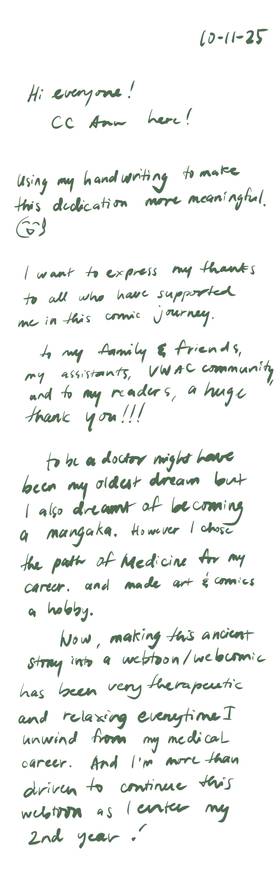 10-11-25
Hi everyone!
CC Ann here!
Using my handwriting to make
this dedication more meaningful.
I want to express my thanks
to all who have supported
me in this comic journey.
to my family & friends,
my assistants, VWAC community,
and to my readers, a huge
thank you!!!
to be a doctor might have
been my oldest dream but
I also dreamt of becoming
a mangaka. However I chose
the path of Medicine for my
career. and made art & comics
a hobby.
Now, making this ancient
story into a webtoon/webcomic
has been very therapeutic
and relaxing everytime I
unwind from my medical
career. And I'm more than
driven to continue this
webtoon as I enter my
2nd year!